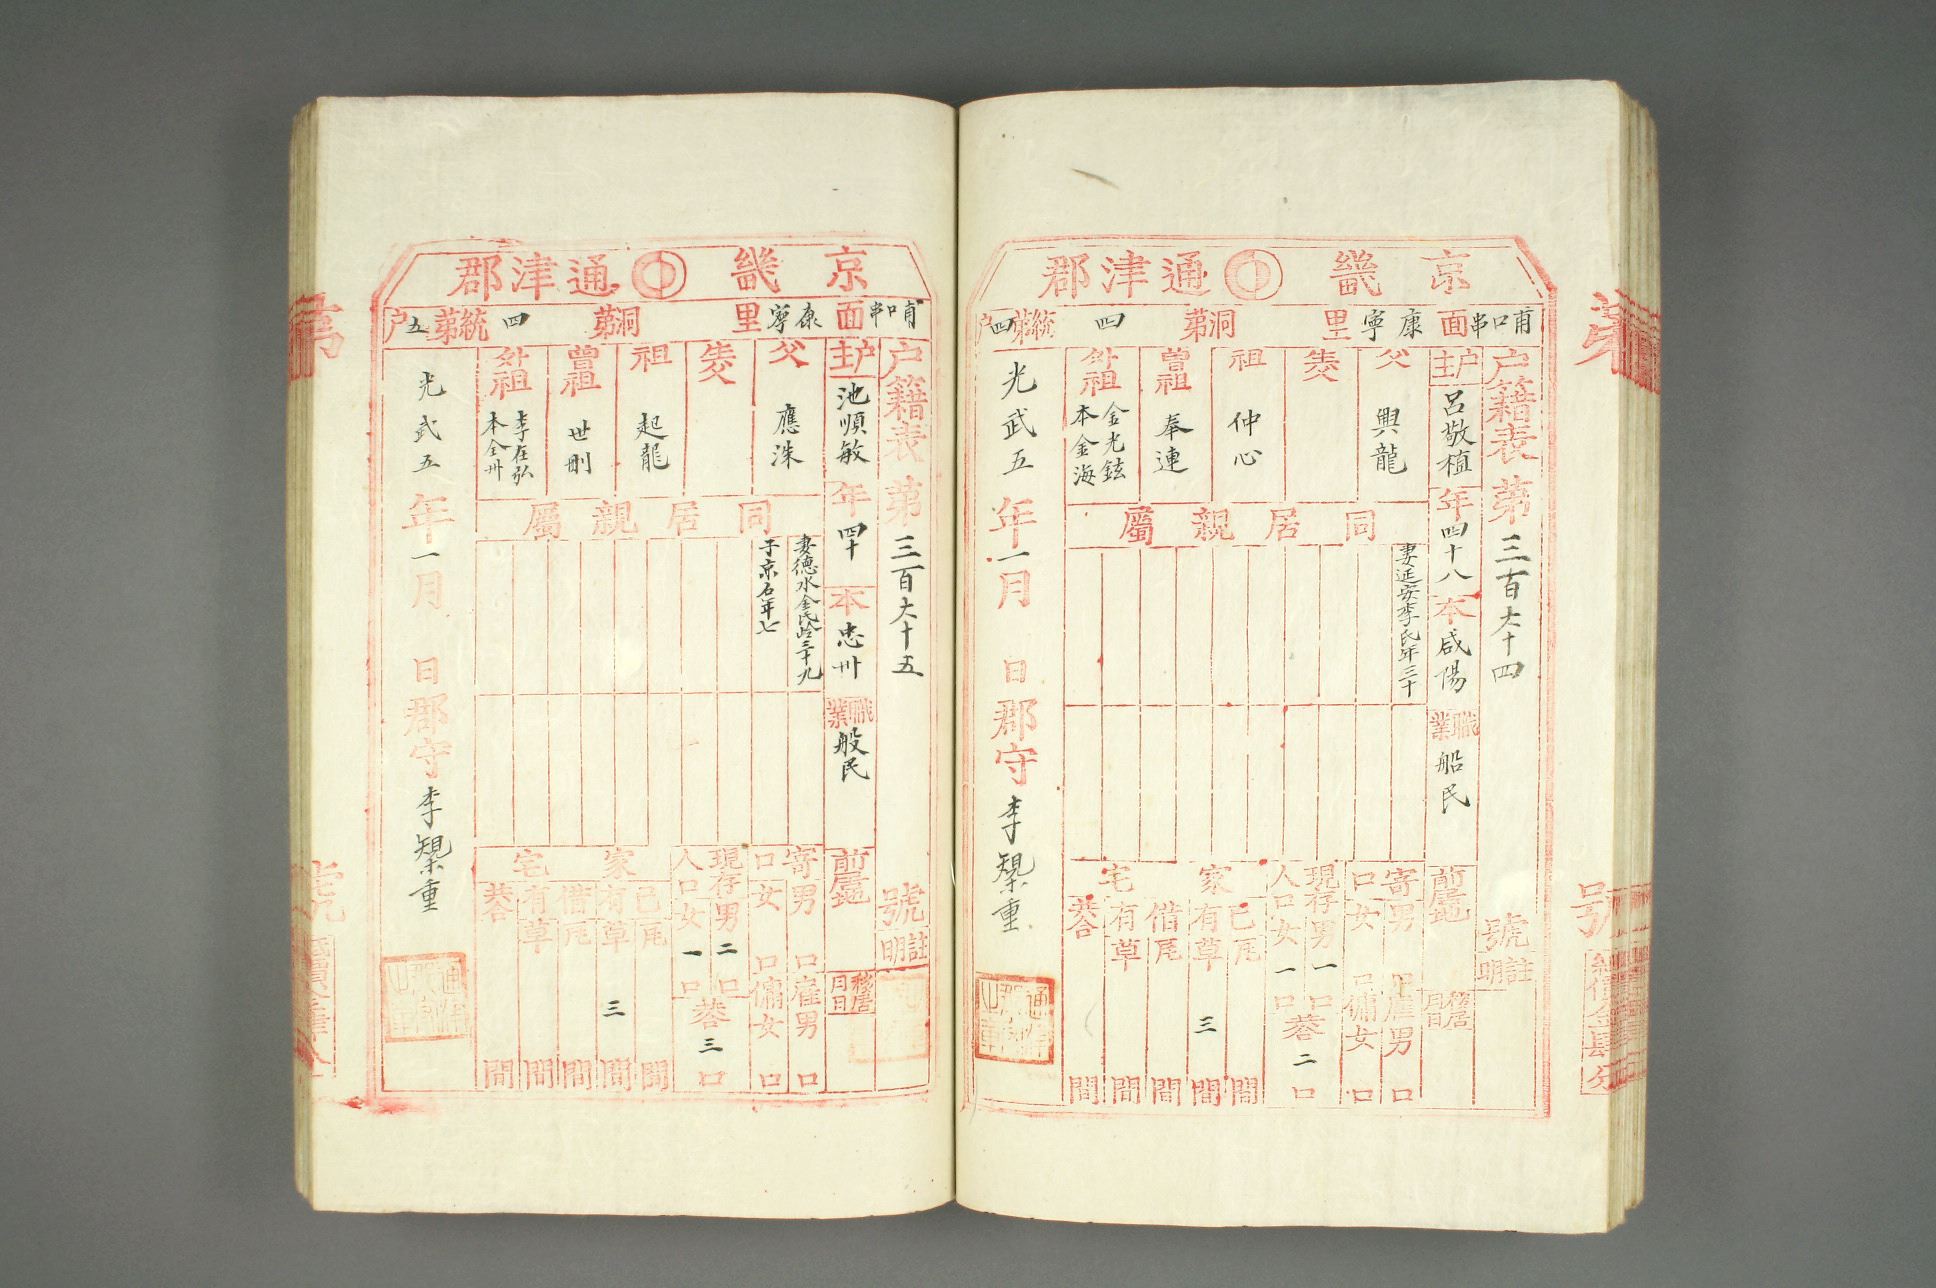 京畿 通津郡
甫口串面 康寧里 洞第四統第四户
户籍表第三百六十四號
註明
户主呂敬植年四十八本咸陽職業船民前居地
移居月日
父興龍
生父
祖仲心
曾祖奉連
外祖金光鉉本金海
同居親屬
妻延安李氏年三十
寄口男 口女 口
雇男 口傭女 口
現存男一口
人口女一口
共二口
家宅
己有瓦 間
有草三間
借有瓦 間
草 間
共合 間
光武五年一月 日郡守李㮨重
通津郡守之章
京畿 通津郡
甫口串面 康寧里 洞第四統第五户
户籍表第三百六十五號
註明
户主池順敏年四十本忠州職業船民前居地
移居月日
父應洙
生父
祖起龍
曾祖世刪
外祖李在弘本全州
同居親屬
妻德水金氏齡三十九
子京石年七
寄口男 口女 口
雇男 口傭女 口
現存男二口
人口女一口
共三口
家宅
己有瓦 間
有草三間
借有瓦 間
草 間
共合 間
光武五年一月 日郡守李㮨重
通津郡守之章